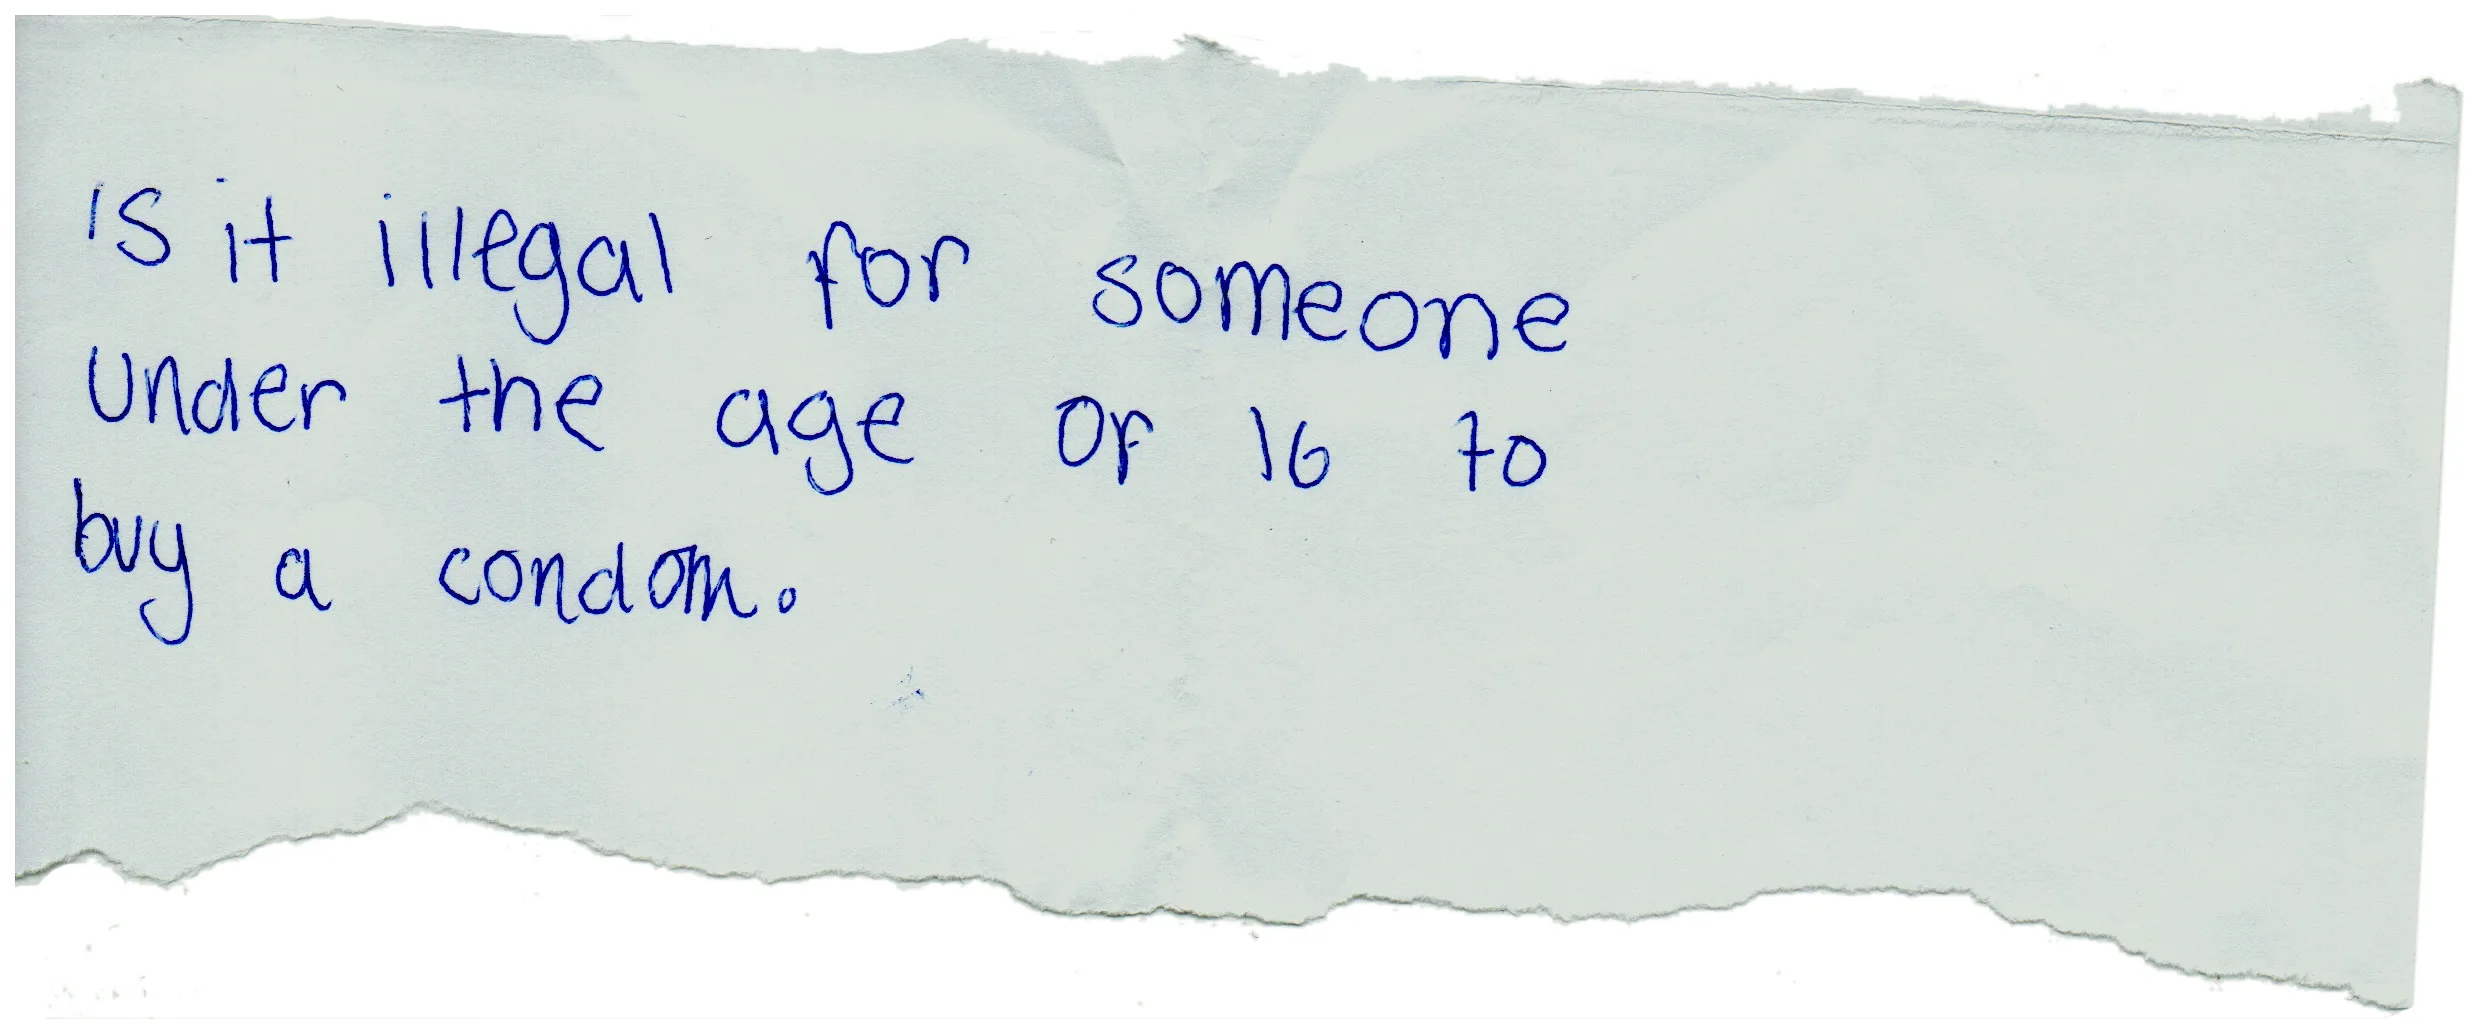 is it illegal for someone
under the age of 16 to
buy a condom.